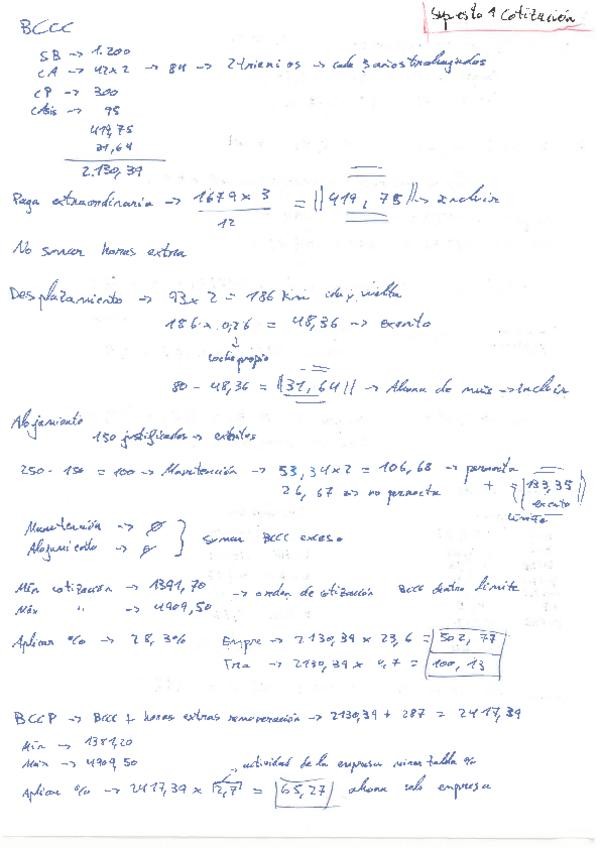 Supuesto 1 Cotización
BCCC
SB → 1.200
CA → 42x2 → 84 → 2 trienios → cada 3 años trabajados
CP → 300
CAsis → 95
419,75
31,64
2.130,39
Paga extraordinaria → 1679 x 3 / 12 = 419,75 → Incluir
No sumar horas extra
Desplazamiento → 93 x 2 = 186 Km ida y vuelta
186 x 0,26 = 48,36 → exento
coche propio
80 - 48,36 = 31,64 → Abona de más → incluir
Alojamiento
150 justificados → exentos
250 - 150 = 100 → Manutención → 53,34x2 = 106,68 → pernocta
26,67 → no pernocta + = 133,35
exento
límite
Manutención → ø
Alojamiento → ø } sumar BCCC exceso
Mín cotización → 1391,70
Máx " → 4909,50 → orden de cotización BCCC dentro límite
Aplicar % → 28,3% Empre → 2130,39 x 23,6 = 502,77
Tra → 2130,39 x 4,7 = 100,13
BCCP → BCCC + horas extras remuneración → 2130,39 + 287 = 2417,39
Mín → 1381,20
Máx → 4909,50
actividad de la empresa mirar tabla %
Aplicar % → 2417,39 x 2,7 = 65,27 abona solo empresa